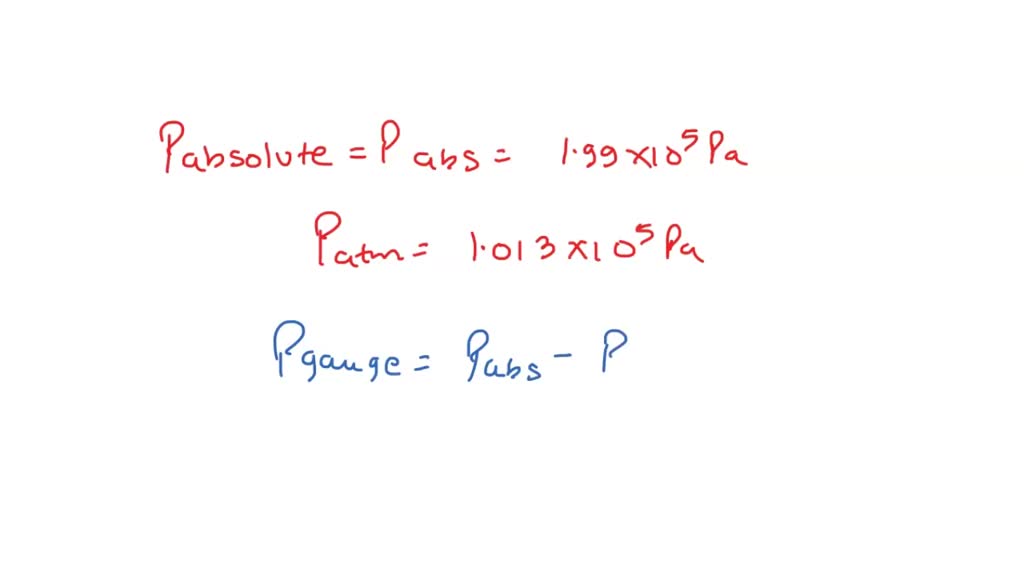 Pabsolute = Pabs = 1.99×10⁵ Pa
Patm = 1.013×10⁵ Pa
Pgauge = Pabs - P